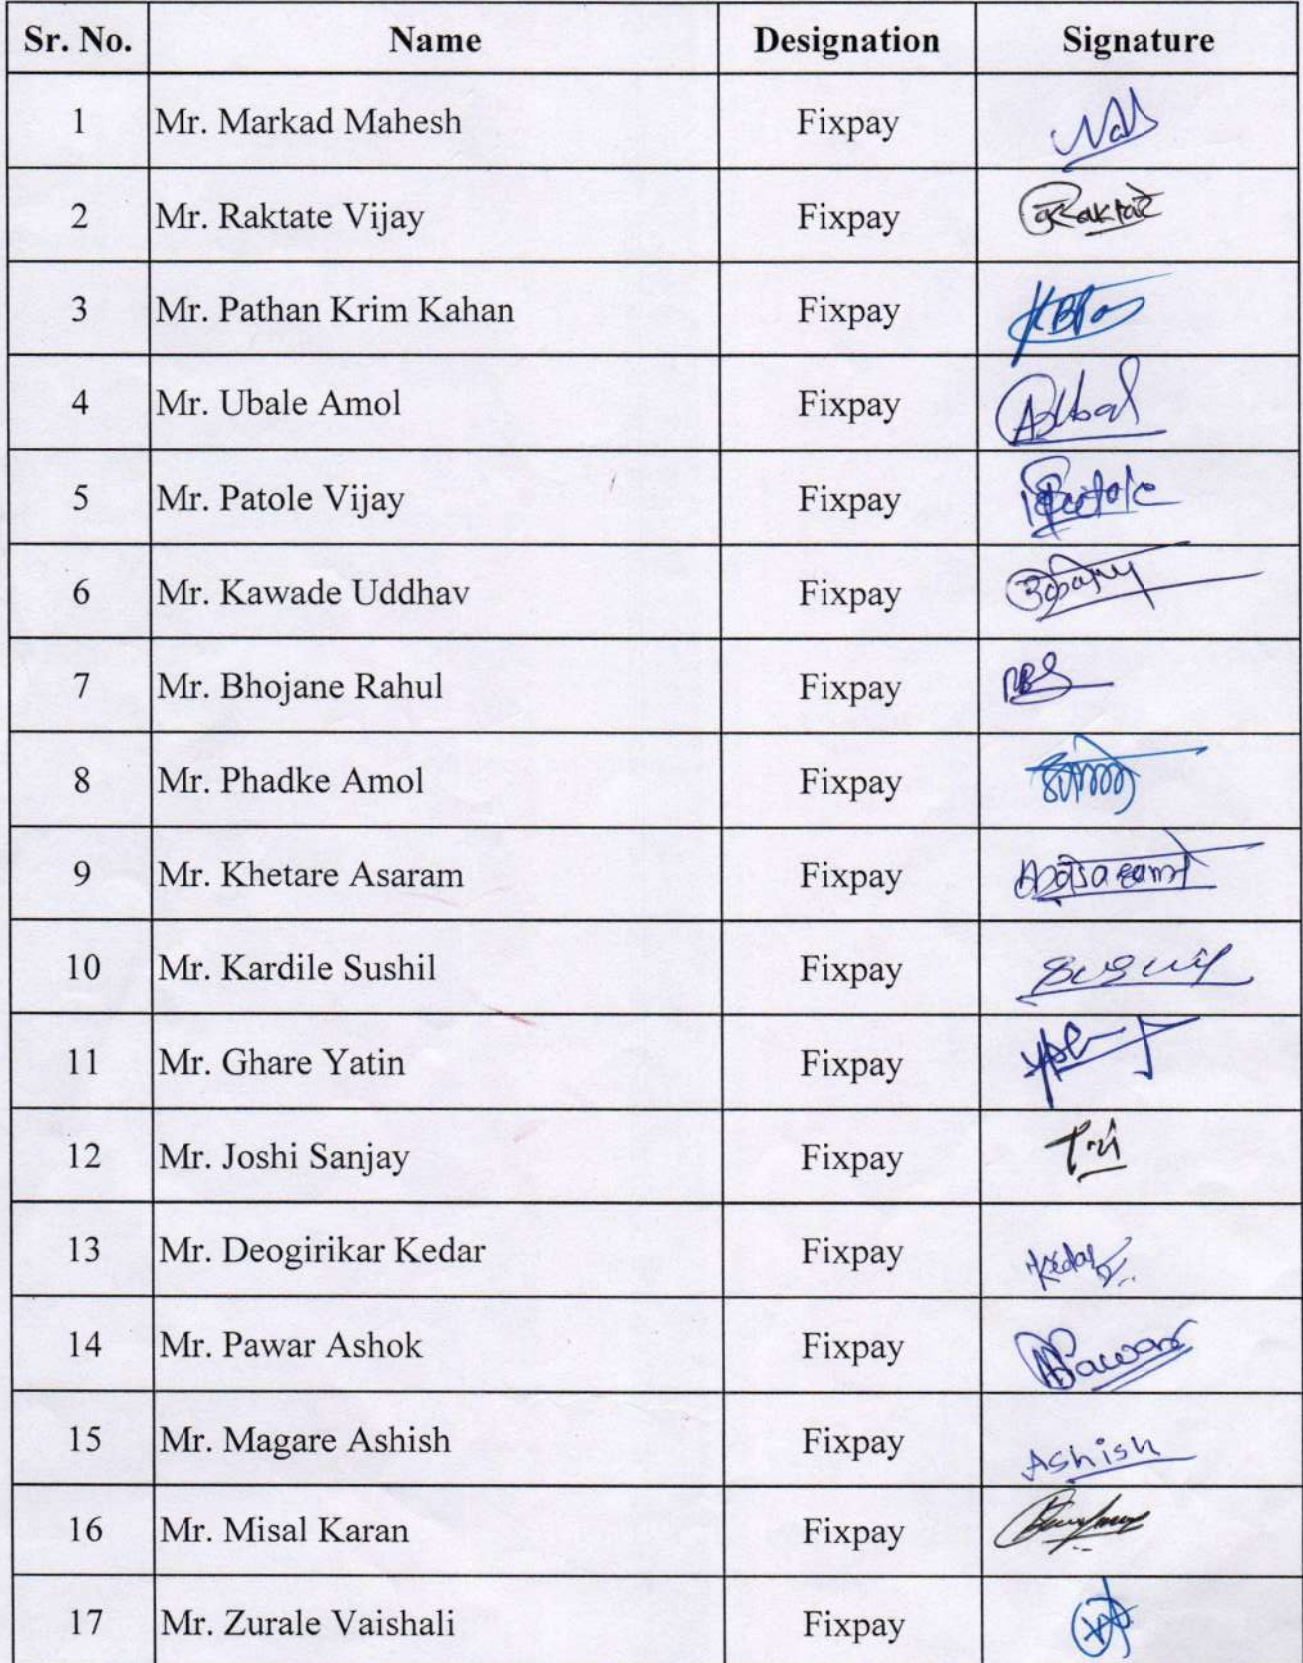 Sr. No. Name Designation Signature
1 Mr. Markad Mahesh Fixpay
2 Mr. Raktate Vijay Fixpay
3 Mr. Pathan Krim Kahan Fixpay
4 Mr. Ubale Amol Fixpay
5 Mr. Patole Vijay Fixpay
6 Mr. Kawade Uddhav Fixpay
7 Mr. Bhojane Rahul Fixpay
8 Mr. Phadke Amol Fixpay
9 Mr. Khetare Asaram Fixpay
10 Mr. Kardile Sushil Fixpay
11 Mr. Ghare Yatin Fixpay
12 Mr. Joshi Sanjay Fixpay
13 Mr. Deogirikar Kedar Fixpay Kedar
14 Mr. Pawar Ashok Fixpay
15 Mr. Magare Ashish Fixpay Ashish
16 Mr. Misal Karan Fixpay
17 Mr. Zurale Vaishali Fixpay